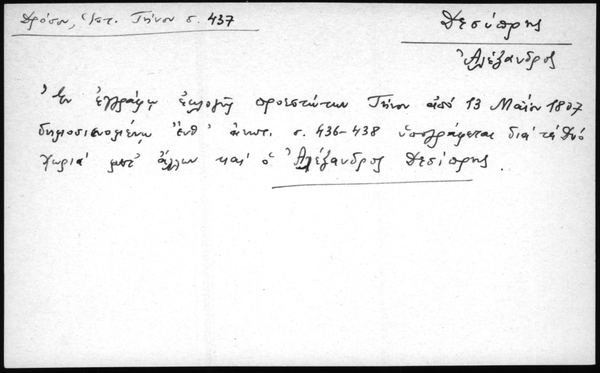 Δρόσου, Ἱστ. Τήνου σ. 437
Δεσύπρης
Ἀλέξανδρος
Ἐν ἐγγράφῳ ἐκλογῆς προεστώτων Τήνου ἀπό 13 Μαΐου 1807
δημοσιευομένῳ ἔνθ' ἀνωτ. σ. 436-438 ὑπογράφεται διά τά Δύο
Χωριά μετ' ἄλλων καί ὁ Ἀλέξανδρος Δεσύπρης.